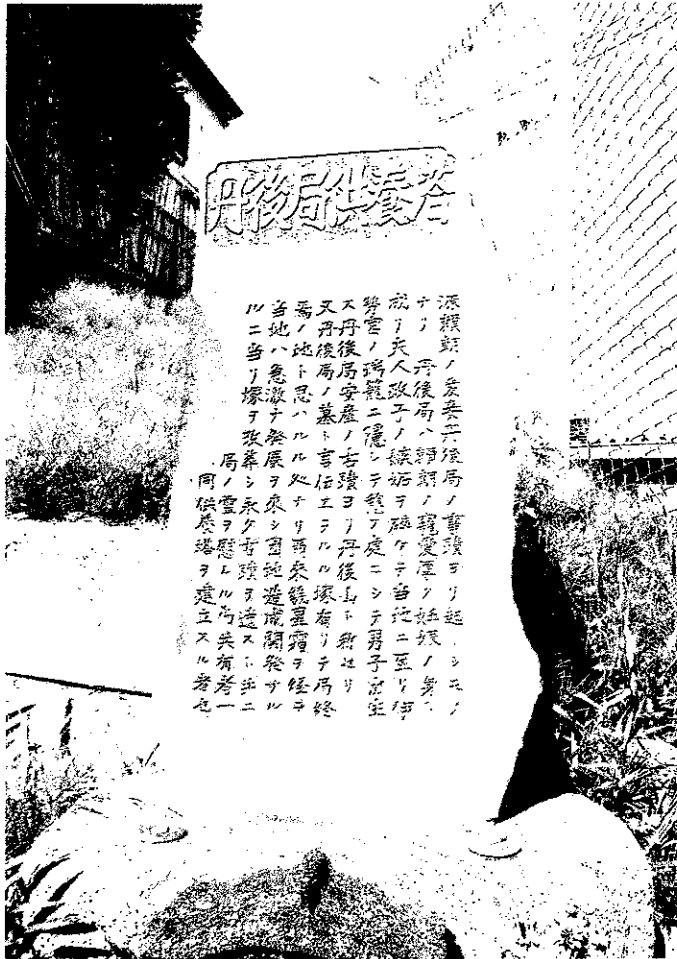 丹後局供養塔
源頼朝ノ 丹後局ノ 旧蹟ヨリ起 シモノ
ナリ 丹後局ハ頼朝ノ寵愛厚ク妊娠ノ身ト
成リ夫人政子ノ嫉妬ヲ避ケテ当地ニ至リ
ノ瑞籬ニ隠シテ 処ニシテ男子
ス丹後局安産ノ古蹟ヨリ丹後山ト称せり
又丹後局ノ墓ト言伝エラルル塚有リテ局終
焉ノ地ト思ハルル処ナリ爾来幾星霜ヲ経テ
当地ハ急激ナ発展ヲ来シ団地造成開発サル
ルニ当リ塚ヲ改葬シ永ク古蹟ヲ遺スト共ニ
局ノ霊ヲ慰ムル為共有者一
同供養塔ヲ建立スル者也